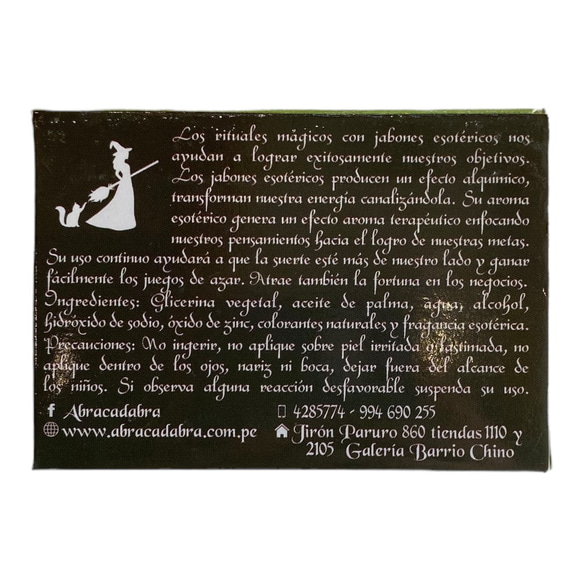 Los rituales mágicos con jabones esotéricos nos
ayudan a lograr exitosamente nuestros objetivos.
Los jabones esotéricos producen un efecto alquímico,
transforman nuestra energía canalizándola. Su aroma
esotérico genera un efecto aroma terapéutico enfocando
nuestros pensamientos hacia el logro de nuestras metas.
Su uso continuo ayudará a que la suerte esté más de nuestro lado y ganar
fácilmente los juegos de azar. Atrae también la fortuna en los negocios.
Ingredientes: Glicerina vegetal, aceite de palma, agua, alcohol,
hidróxido de sodio, óxido de zinc, colorantes naturales y fragancia esotérica.
Precauciones: No ingerir, no aplique sobre piel irritada o lastimada, no
aplique dentro de los ojos, nariz ni boca, dejar fuera del alcance de
los niños. Si observa alguna reacción desfavorable suspenda su uso.
Abracadabra
4285774 - 994 690 255
www.abracadabra.com.pe
Jirón Paruro 860 tiendas 1110 y
2105 Galería Barrio Chino